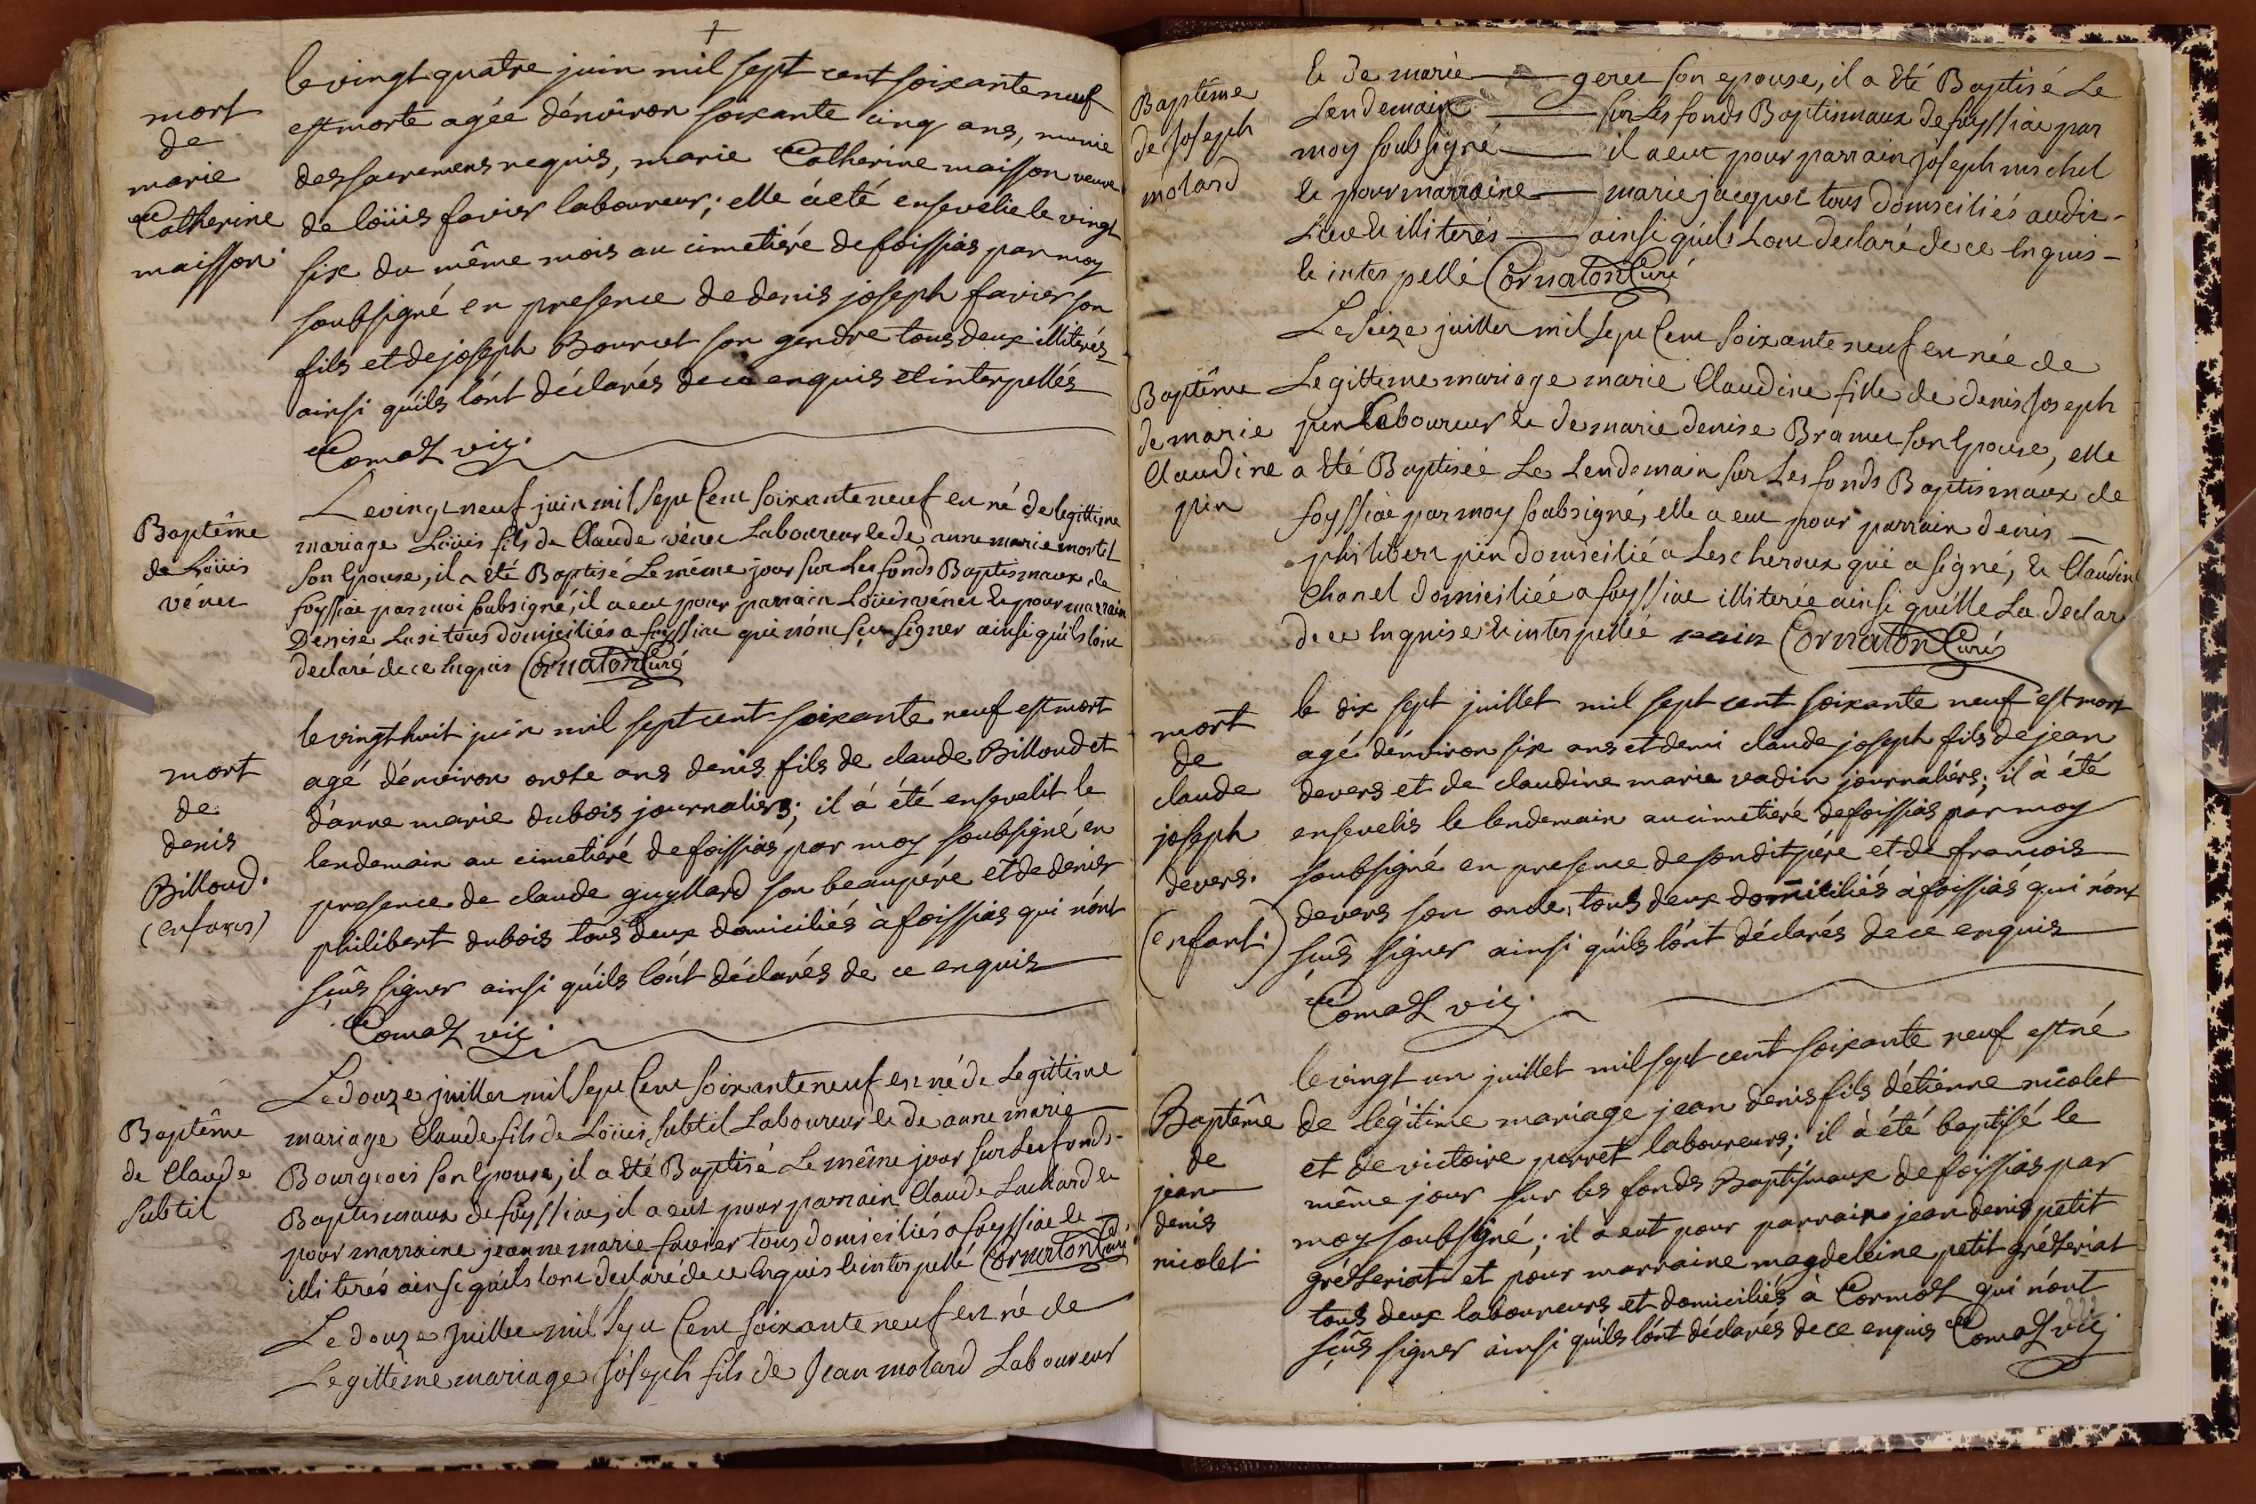 mort
de
marie
Catherine
maisson.
le vingt quatre juin mil sept cent soixante neuf
est morte agée d'énviron soixante cinq ans, munie
des sacremens requis, marie Catherine maisson veuve
de loüis favier laboureur; elle à eté ensevelie le vingt
six du même mois au cimetiéré de foissias par moy
soubsigné en presence de denis joseph favier son
fils et de joseph Bourcet son gendre tous deux illiterés
ainsi qúils lónt déclarés de ce enquis et interpellés
Comaz vic.
Baptême
de Loüis
vénet
Le vingt neuf juin mil sept Cent soixante neuf est né de legittime
mariage Loüis fils de Claude vénet Laboureur et de anne marie mortel
son Epouse, il a Eté Baptisé Le même jour sur Les fonds Baptismaux de
foyssiat par moi soubsigné, il a eut pour parrain Loüis vénet et pour marrain
Denise Lasi tous domiciliés a foyssiat qui nónt sçu signer ainsi qúils lónt
declaré de ce Enquis Cornaton Curé
mort
de
denis
Billoud.
(enfans)
le vingt huit juin mil sept cent soixante neuf est mort
agé d'énviron onze ans denis fils de claude Billoud et
d'anne marie dubois journaliers; il á été ensevelit le
lendemain au cimetiéré de foissias par moy soubsigné en
presence de claude guyllard son beaupéré et de denis
philibert dubois tous deux domiciliés à foissias qui nónt
sçûs signer ainsi qúils lónt déclarés de ce enquis
Comaz vic.
Baptême
de Claude
subtil
Le douze juillet mil sept Cent soixante neuf est né de Legittime
mariage Claude fils de Loüis subtil Laboureur et de anne marie
Bourgeois son Epouse, il a Eté Baptisé Le même jour sur Les fonds-
Baptismaux de foyssiat, il a eut pour parrain Claude Luchard et
pour marraine jeanne marie favier tous domiciliés a foyssiat et
illiterés ainsi qúils lónt declaré de ce Enquis et interpellé Cornaton Curé
Le douze Juillet mil sept Cent soixante neuf est né de
Legittime mariage Joseph fils de Jean molard Laboureur
Baptême
de Joseph
molard
et de marie geret son epouse, il a Eté Baptisé Le
Lendemain sur Les fonds Baptismaux de foyssiat par
moy soubsigné il a eut pour parrain Joseph michel
et pour marraine marie jacquet tous domiciliés audit-
Lieu et illiterés ainsi qúils Lont declaré de ce Enquis-
et interpellé Cornaton Curé
Baptême
de marie
Claudine
pin
Le seize juillet mil sept Cent soixante neuf est née de
Legittime mariage marie Claudine fille de denis Joseph
pin Laboureur et de marie denise Bramet son Epouse, elle
a Eté Baptiseé Le Lendemain sur Les fonds Baptismaux de
foyssiat par moy soubsigné, elle a eut pour parrain denis
philibert pin domicilié a Lescheroux qui a signé, et Claudin
Chanel domiciliée a foyssiat illiterée ainsi quélle La declar
de ce Enquise et interpellée Cornaton Curé
mort
de
claude
joseph
devers.
(enfant)
le dix sept juillet mil sept cent soixante neuf est mort
agé d'énviron six ans et demi claude joseph fils de jean
devers et de claudine marie vadin journaliérs; il à été
ensevelis le lendemain au cimetiéré de foissias par moy
soubsigné en presence de sondit péré et de francois
devers son oncle, tous deux domiciliés à foissias qui nónt
sçûs signer ainsi qúils lónt déclarés de ce enquis
Comaz vic.
Baptême
de
jean
denis
nicolet
le vingt un juillet mil sept cent soixante neuf est né
de légitime mariage jean denis fils d'étienne nicolet
et de victoire perret laboureurs; il à été baptisé le
même jour sur les fonds Baptismaux de foissias par
moy soubsigné; il à eut pour parrain jean denis petit
grézeriat et pour marraine magdeleine petit grézeriat
tous deux laboureurs et domiciliés à Cormoz qui nónt
sçûs signer ainsi qúils lónt déclarés de ce enquis Comaz vic